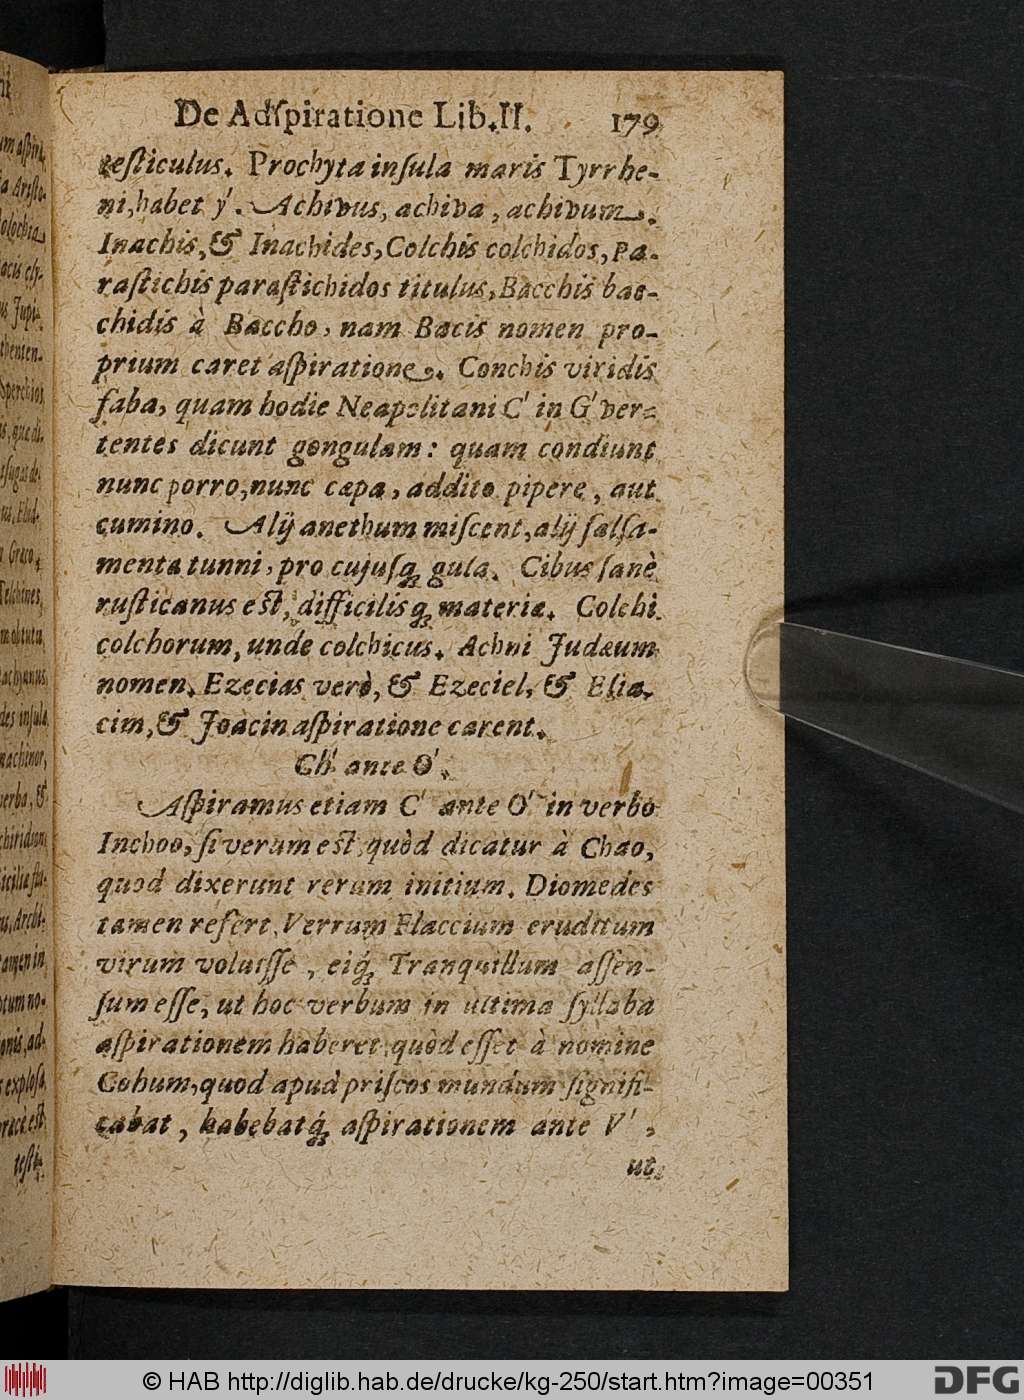 De Adſpiratione Lib. II. 179
teſticulus. Prochyta inſula maris Tyrrhe-
ni, habet y'. Achivus, achiva, achivum.
Inachis, & Inachides, Colchis colchidos, Pa-
raſtichis paraſtichidos titulus, Bacchis bac-
chidis à Baccho, nam Bacis nomen pro-
prium caret aſpiratione. Conchis viridis
faba, quam hodie Neapolitani C' in G' ver-
tentes dicunt gongulam: quam condiunt
nunc porro, nunc cæpa, addito pipere, aut
cumino. Alij anethum miſcent, alij ſalſa-
menta tunni, pro cujuſq; gula. Cibus ſanè
ruſticanus eſt, difficilisq; materiæ. Colchi
colchorum, unde colchicus. Achni Judæum
nomen. Ezecias verò, & Ezeciel, & Elia-
cim, & Joacin aſpiratione carent.
Ch' ante O'.
Aſpiramus etiam C' ante O' in verbo
Inchoo, ſi verum eſt, quòd dicatur à Chao,
quod dixerunt rerum initium. Diomedes
tamen refert, Verrum Flaccium eruditum
virum voluiſſe, eiq́; Tranquillum aſſen-
ſum eſſe, ut hoc verbum in ultima ſyllaba
aſpirationem haberet, quòd eſſet à nomine
Cohum, quod apud priſcos mundum ſignifi-
cabat, habebatq́; aſpirationem ante V',
ut
um aſpira-
ia Ariſto-
us Jupi-
Sperchios,
Telchines,
des inſula
machinor,
verba, &
us, Archi-
tamen in
ptum no-
onis, ad-
teſti-
© HAB http://diglib.hab.de/drucke/kg-250/start.htm?image=00351
DFG